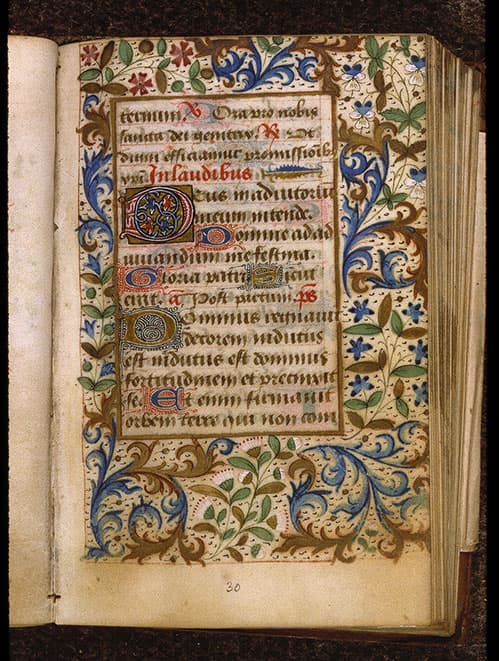 ternum. V Ora pro nobis
sancta dei genitrix. R Ut
digni efficiamur promissionib
xpi. In laudibus
Deus in adiutoriu
meum intende.
Domine ad ad
iuuandum me festina.
Gloria patri. Sicut
erat. a Post partum. ps
Dominus regnauit
decorem indutus
est indutus est dominus
fortitudinem et precinxit
se. Et enim firmauit
orbem terre qui non com
30